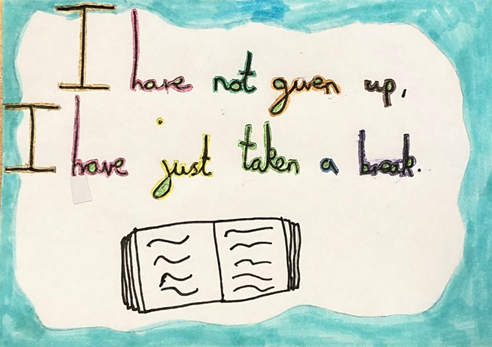 I have not given up,
I have just taken a break.